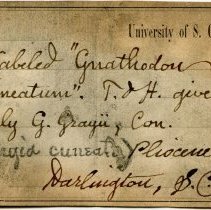 University of S. C
Labeled "Gnathodon
neatum". T. & H. give
ly G. Grayii, Con.
cuneata Pliocene
Darlington, S. C